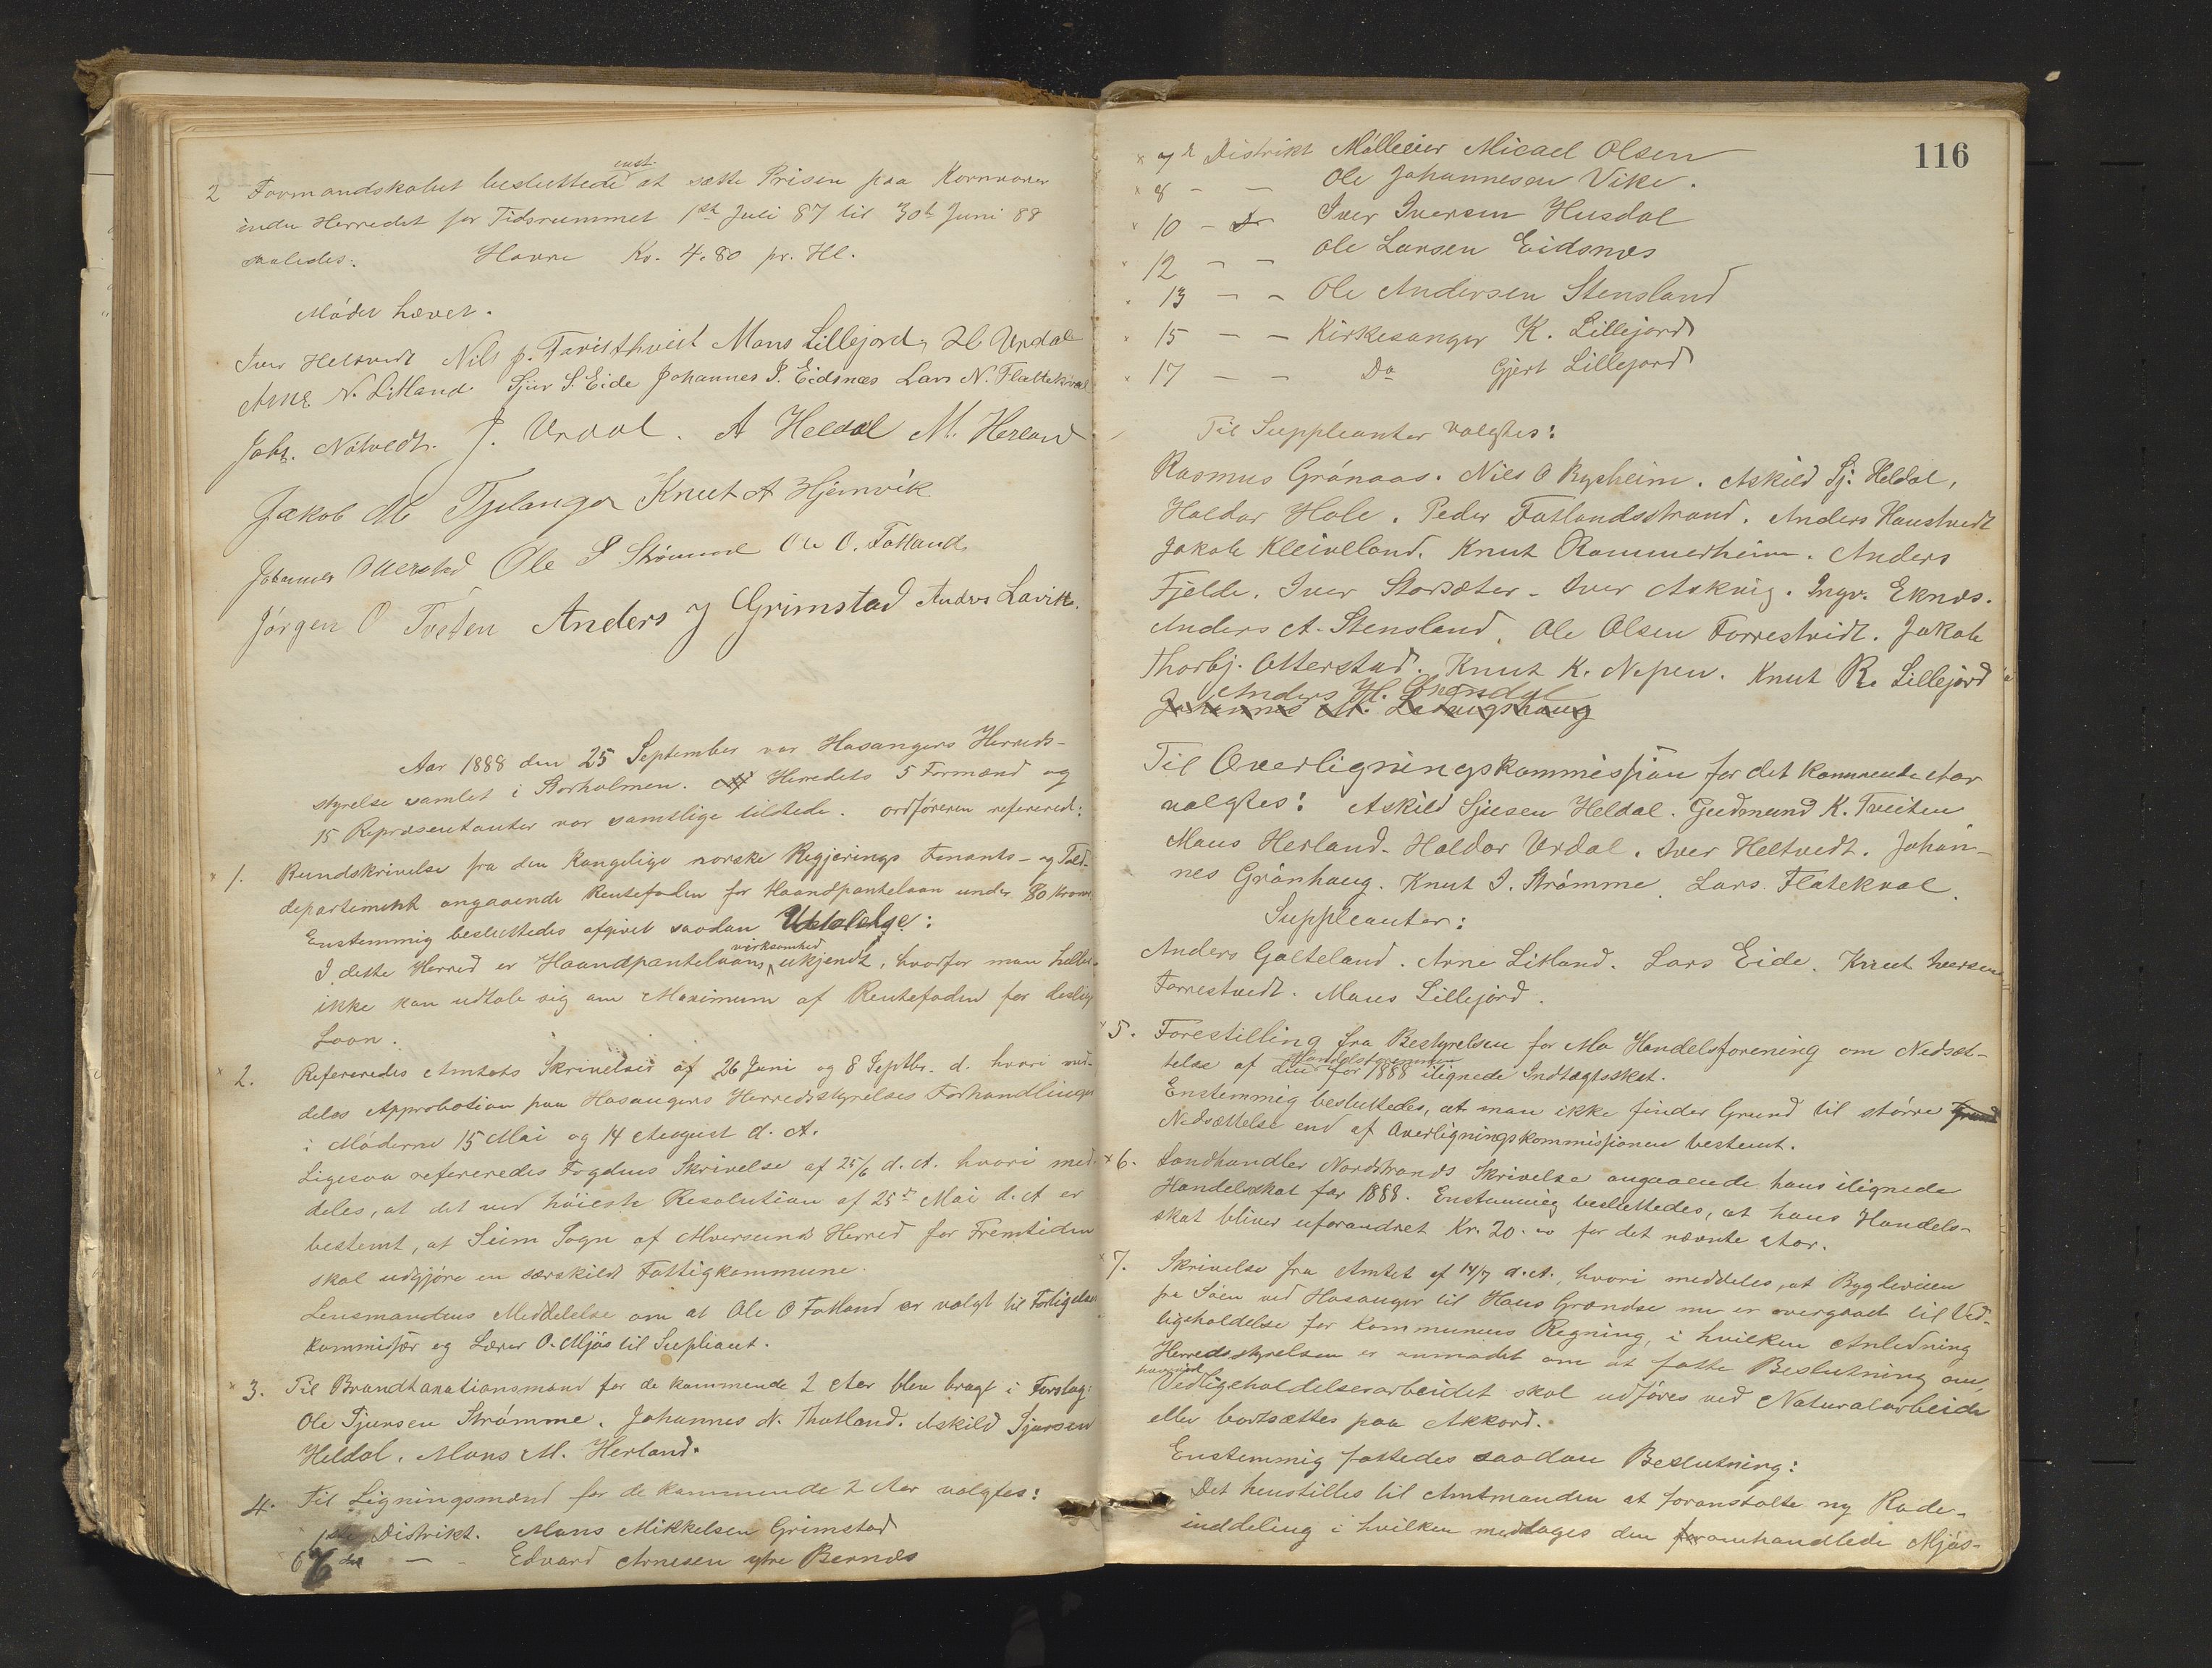 2 Formandskabet besluttede enst. at sætte Prisen paa Kornvarer
inden Herredet for Tidsrummet 1ste Juli 87 til 30te Juni 88
saaledes: Havre Kr. 4.80 pr. Hl.
Mödet hævet.
Iver Heltvedt Nils p. Mons Lillejord, Urdal
Arne N. Litland. Sjur S. Eide Johannes J. Eidsnæs Lars N. Flattekval
Johs. Nötvedt. J. Urdal. A Heldal M. Herland
Jakob M Tjelanger Knut A Hjemvik
Johannes Otterstad Ole S Strömme Ole O. Fatland
Jörgen O Tveten Anders J Grimstad Anders Lavik
Aar 1888 den 25 September var Hosangers Herreds-
styrelse samlet i Storholmen. Af Herredets 5 Formænd og
15 Repræsentanter var samtlige tilstede. Ordföreren refererede:
1. Rundskrivelse fra den Kongelige norske Regjerings Finants- og Told-
departement angaaende Rentefoden for Haandpantelaan under 80 Kroner
Enstemmig besluttedes afgivet saadan Udtalelse:
I dette Herred er Haandpantelaans virksomhed ukjendt, hvorfor man heller
ikke kan udtale sig om Maximum af Rentefoden for deslige
Laan.
2. Refereredes Amtets Skrivelser af 26 Juni og 8 Septbr. d. hvori med-
deles Approbation paa Hosangers Herredsstyrelses Forhandlinger
i Möderne 15 Mai og 14 August d. A.
Ligesaa refereredes Fogdens Skrivelse af 25/6 d. A. hvori med-
deles, at det ved höieste Resolution af 25de Mai d. A er
bestemt, at Seim Sogn af Alversunds Herred for Fremtiden
skal udgjöre en særskildt Fattigkommune.
Lensmandens Meddelelse om at Ole O Fatland er valgt til Forligelses-
kommissær og Lærer O. Mjös til Supleant.
3. Til Brandtaxationsmænd for de kommende 2 Aar blev bragt i Forslag:
Ole Sjursen Strömme. Johannes N. Thotland. Askild Sjursen
Heldal. Mons M. Herland.
4. Til Ligningsmænd for de kommende 2 Aar valgtes:
1ste Distrikt. Mons Mikkelsen Grimstad
6 6de — - Edvard Arnesen ytre Bernæs
116
7de Distrikt Mölleeier Micael Olsen
8 - - Ole Johannesen Vike.
10 - - Iver Iversen Husdal
12 - - Ole Larsen Eidsnæs
13 - - Ole Andersen Stensland
15 - - Kirkesanger K. Lillejord
17 - - Do Gjert Lillejord
Til Suppleanter valgtes:
Rasmus Grönaas. Nils O Rysheim. Askild Sj. Heldal,
Haldor Hole. Peder Fatlandsstrand. Anders Haustveit
Jakob Kleiveland. Knut Rommerheim. Anders
Fjelde. Iver Storsæter - Iver Askvig. Ingv. Eknæs.
Anders A. Stensland. Ole Olsen Forrestvedt. Jakob
Thorbj. Otterstad. Knut K. Nepen. Knut R. Lillejord
Anders H.
Johannes M.
Til Overligningskommission for det kommende Aar
valgtes: Askild Sjursen Heldal. Gudmund K. Tveiten
Mons Herland. Haldor Urdal. Iver Heltvedt. Johan-
nes Grönhaug. Knut I. Strömme. Lars Flatekval.
Suppleanter:
Anders Galteland. Arne Litland. Lars Eide. Knut Iversen
Forrestvedt. Mons Lillejord.
5. Forestilling fra Bestyrelsen for Mo Handelsforening om Nedsæt-
telse af den Handelsforeningen for 1888 ilignede Indtægtsskat.
Enstemmig besluttedes, at man ikke finder Grund til större Grund
Nedsættelse end af Overligningskommissionen bestemt.
6. Landhandler Nordstrands Skrivelse angaaende hans ilignede
Handelsskat for 1888. Enstemmig besluttedes, at hans Handels-
skat bliver uforandret Kr. 20.00 for det nævnte Aar.
7. Skrivelse fra Amtet af 14/7 d. A., hvori meddeles, at Bygdeveien
fra Söen ved Hosanger til Haus Grændse nu er overgaaet til Ved-
ligeholdelse for Kommunens Regning, i hvilken Anledning
Herredsstyrelsen er anmodet om at fatte Beslutning om,
hvorvidt Vedligeholdelsesarbeidet skal udföres ved Naturalarbeide
eller bortsættes paa Akkord.
Enstemmig fattedes saadan Beslutning:
Det henstilles til Amtmanden at foranstalte ny Rode-
inddeling i hvilken medtages den for omhandlede Mjös-